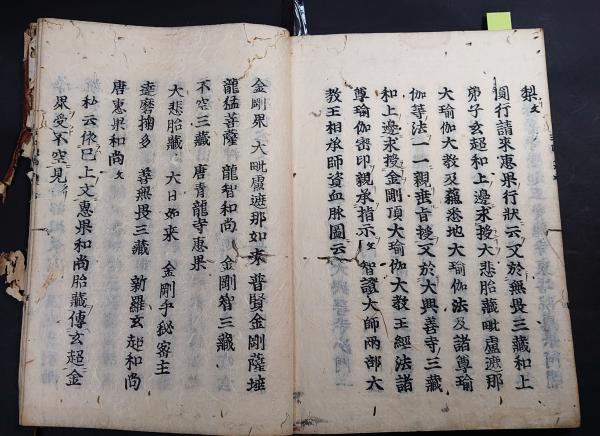 梨文
閡行請来恵果行状云又於無畏三藏和上
弟子玄超和上邊求授大悲胎藏毗盧遮那
大瑜伽大教及蘓悉地大瑜伽法及諸尊瑜
伽等法一一親垂旨授又於大興善寺三藏
和上邊求授金剛頂大瑜伽大教王經法諸
尊瑜伽密印親承指示文智證大師兩部大
教王相承師資血脉圖云
金剛界 大毗盧遮那如来 普賢金剛薩埵
龍猛菩薩 龍智和尚 金剛智三藏
不空三藏 唐青龍寺惠果
大悲胎藏 大日如来 金剛手秘密主
達磨掬多 善無畏三藏 新羅玄超和尚
唐惠果和尚文
私云依巳上文惠果和尚胎藏傳玄超金
界受不空見